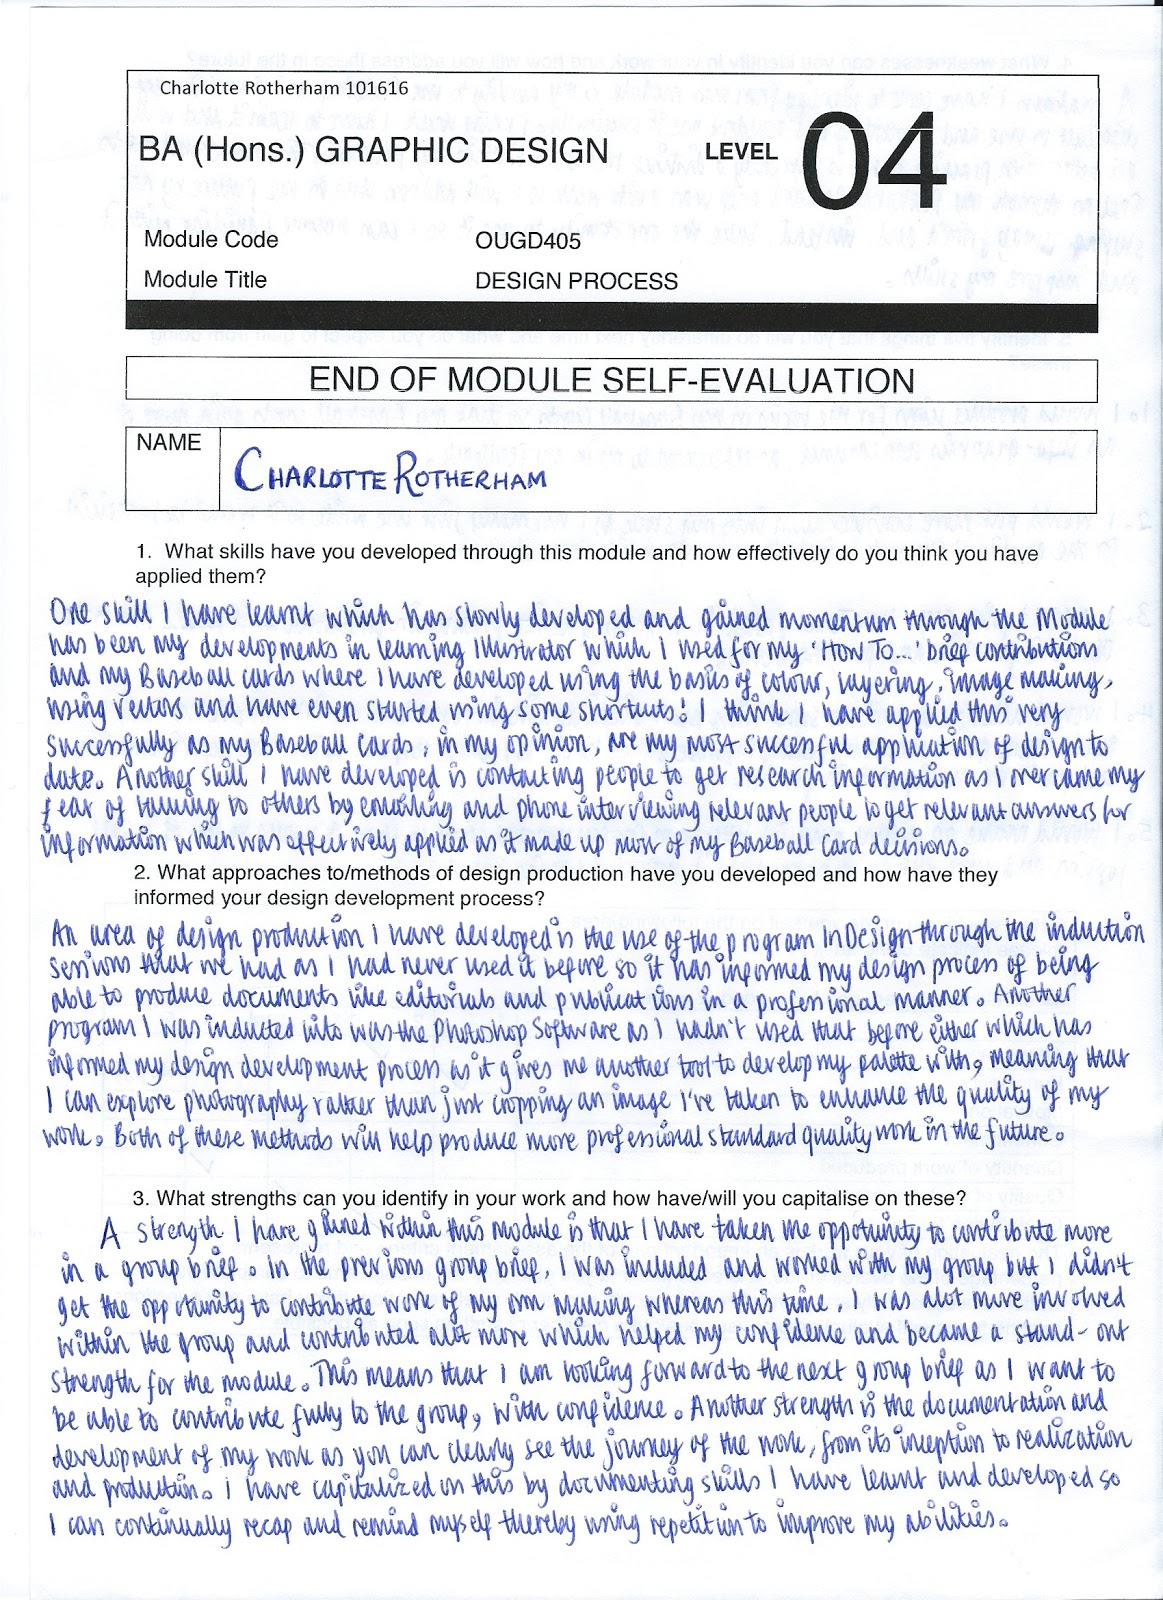 Charlotte Rotherham 101616
BA (Hons.) GRAPHIC DESIGN LEVEL 04
Module Code OUGD405
Module Title DESIGN PROCESS
END OF MODULE SELF-EVALUATION
NAME CHARLOTTE ROTHERHAM
1. What skills have you developed through this module and how effectively do you think you have
applied them?
One skill I have learnt which has slowly developed and gained momentum through the Module
has been my developments in learning Illustrator which I used for my 'How To...' brief contributions
and my Baseball cards where I have developed using the basics of colour, layering, image making,
using vectors and have even started using some shortcuts! I think I have applied this very
successfully as my Baseball Cards, in my opinion, are my most successful application of design to
date. Another skill I have developed is contacting people to get research information as I overcame my
fear of talking to others by emailing and phone interviewing relevant people to get relevant answers for
information which was effectively applied as it made up most of my Baseball Card decisions.
2. What approaches to/methods of design production have you developed and how have they
informed your design development process?
An area of design production I have developed is the use of the program InDesign through the induction
sessions that we had as I had never used it before so it has informed my design process of being
able to produce documents like editorials and publications in a professional manner. Another
program I was inducted into was the Photoshop Software as I hadn't used that before either which has
informed my design development process as it gives me another tool to develop my palette with, meaning that
I can explore photography rather than just cropping an image I've taken to enhance the quality of my
work. Both of these methods will help produce more professional standard quality work in the future.
3. What strengths can you identify in your work and how have/will you capitalise on these?
A strength I have gained within this module is that I have taken the opportunity to contribute more
in a group brief. In the previous group brief, I was included and worked with my group but I didn't
get the opportunity to contribute work of my own making whereas this time, I was alot more involved
within the group and contributed alot more which helped my confidence and became a stand-out
strength for the module. This means that I am looking forward to the next group brief as I want to
be able to contribute fully to the group, with confidence. Another strength is the documentation and
development of my work as you can clearly see the journey of the work, from its inception to realization
and production. I have capitalized on this by documenting skills I have learnt and developed so
I can continually recap and remind myself thereby using repetition to improve my abilities.